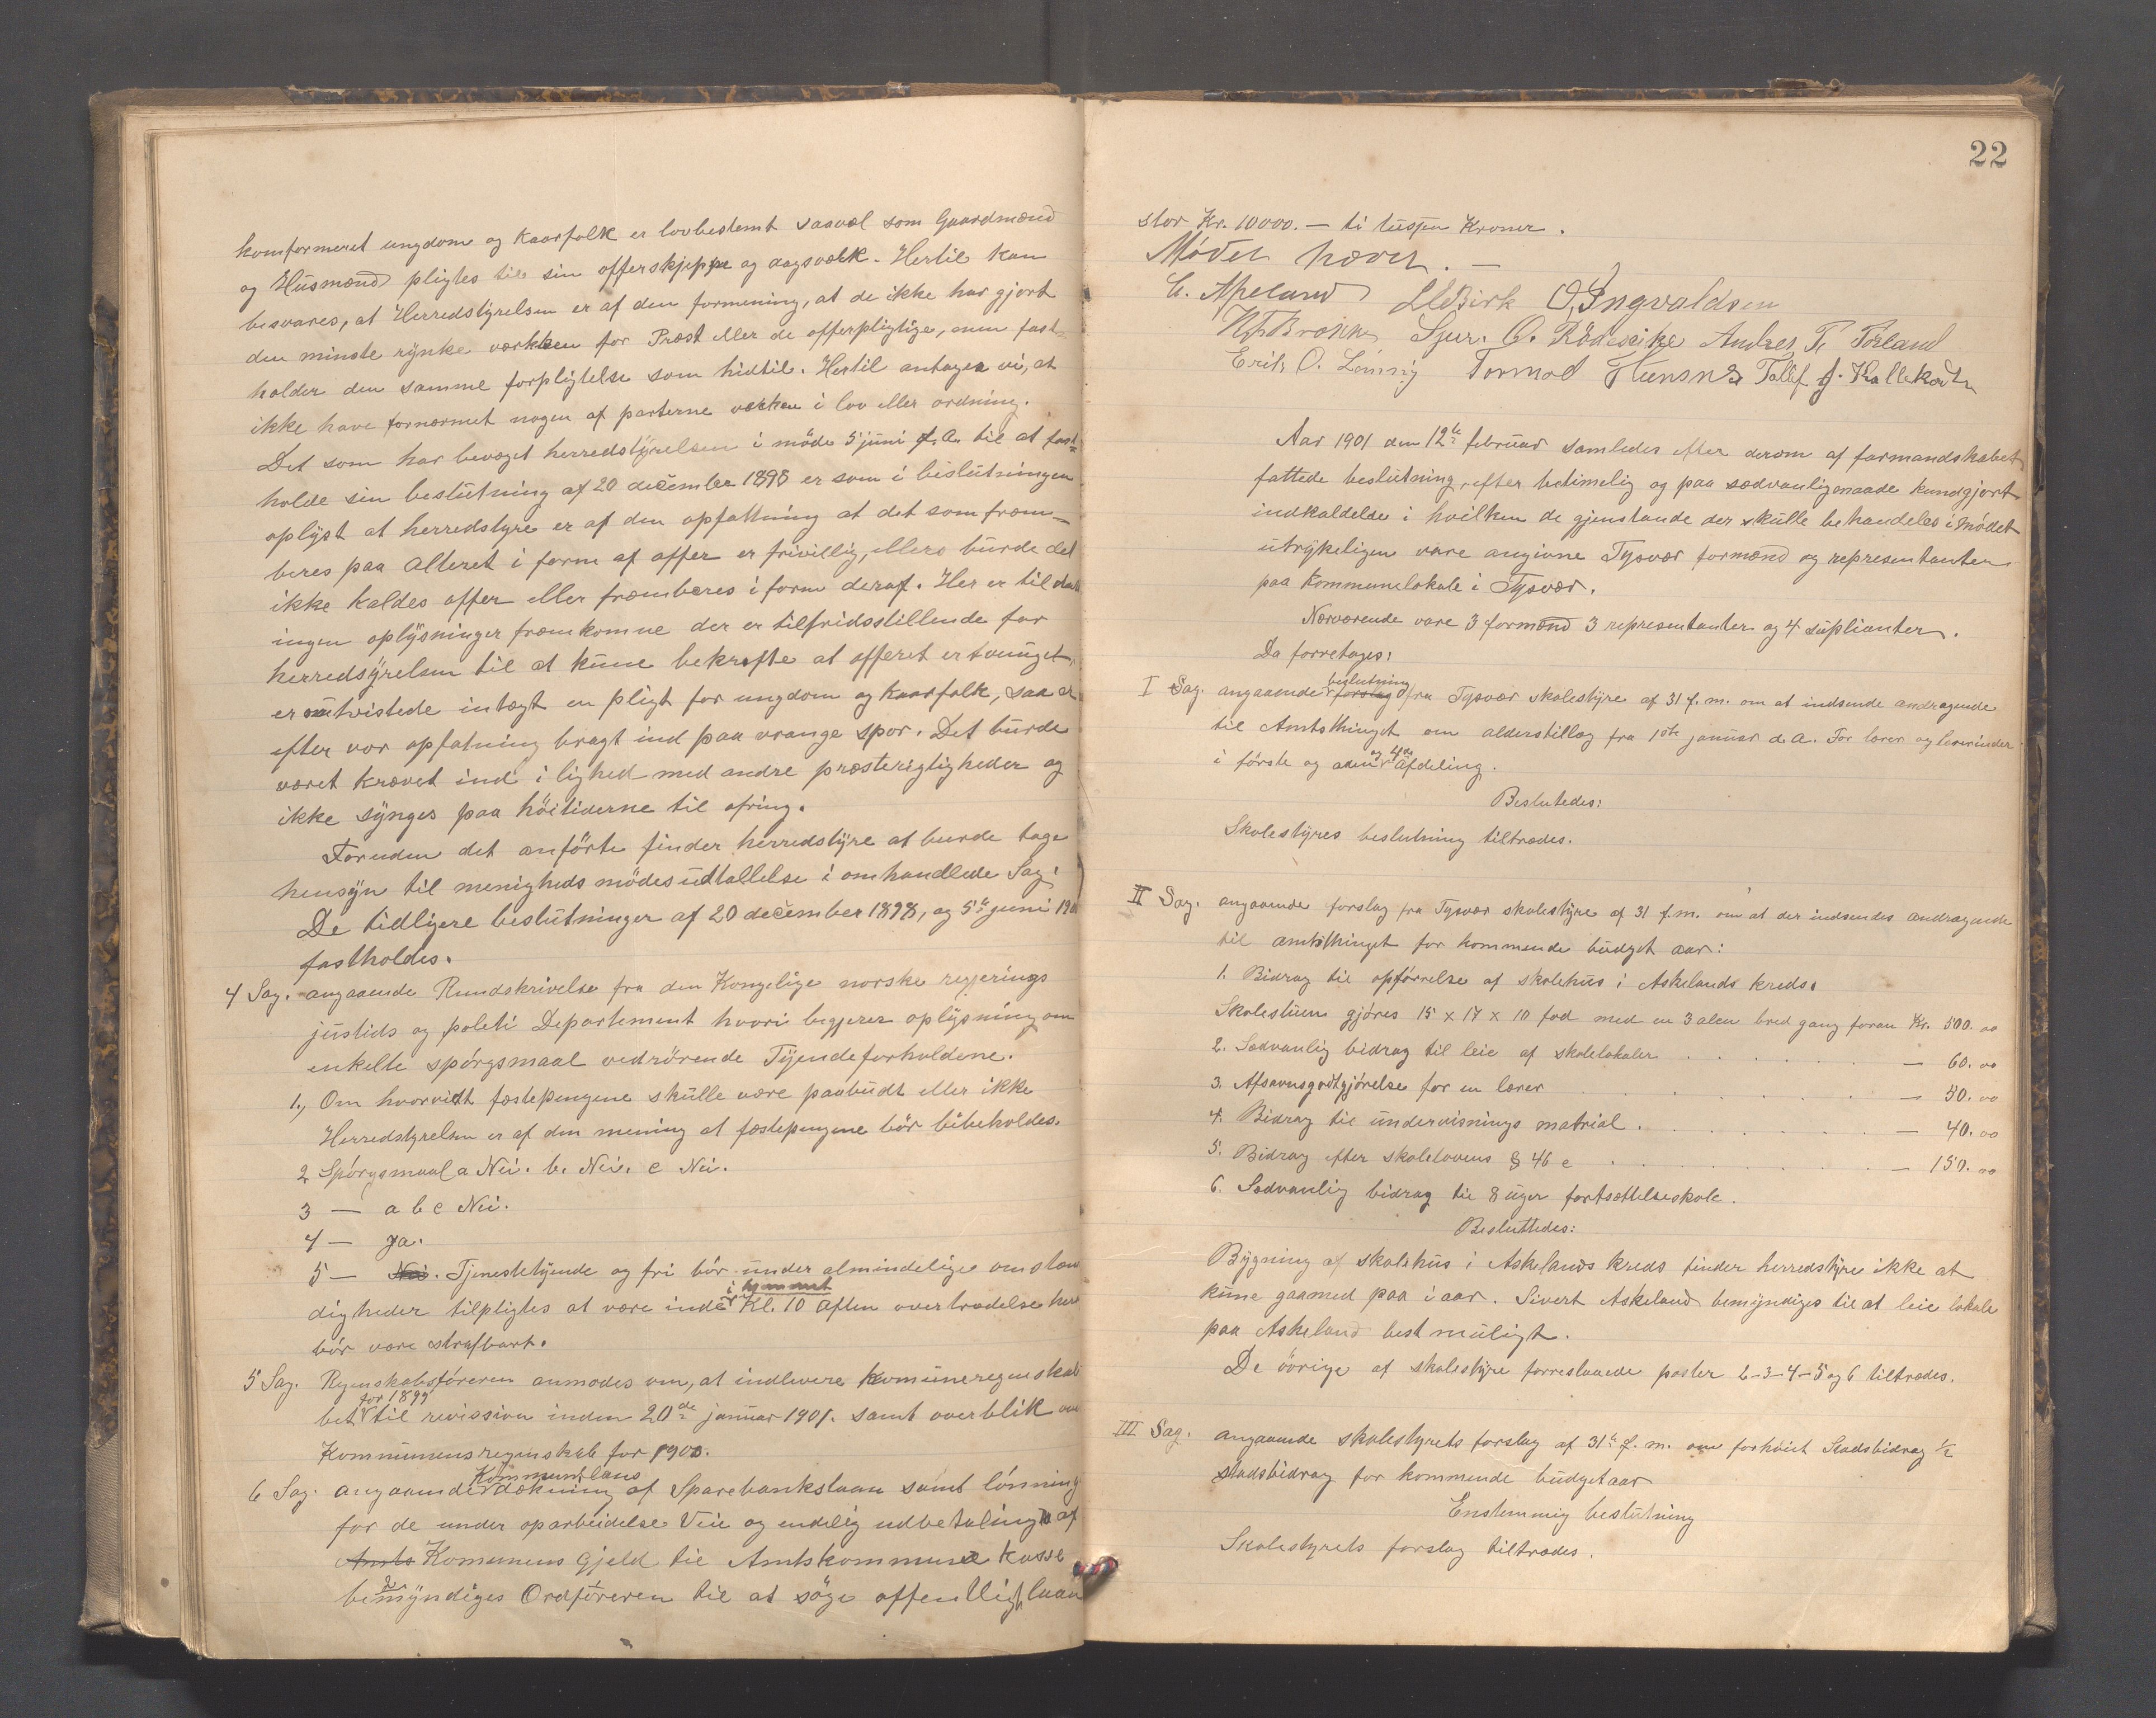 komformeret ungdom og kaarfolk er lovbestemt saavæl som Gaardmænd
og Husmænd pligtes til sin offerskjeppe og dagsværk. Hertil kan
besvares, at Herredstyrelsen er af den formening, at de ikke har gjort
den minste rynke værkken for Præst eller de offerpligtige, men fast-
holder den samme forpligtelse som hidtil. Hertil antager vi, at
ikke have fornærmet nogen af parterne værken i lov eller ordning.
Det som har bevæget herredstyrelsen i möde 5 juni f. a. til at fast-
holde sin beslutning af 20 december 1898 er som i beslutningen
oplyst at herredstyre er af den opfattning at det som frem-
beres paa alteret i form af offer er frivillig, ellers burde det
ikke kaldes offer eller fremberes i form deraf. Her er til
ingen oplysninger fremkomne der er tilfridsstillende for
herredsyrelsen til at kune bekræfte at offeret er tvunget,
er omtvistede intægt en pligt for ungdom og kaarfolk, saa er
efter vor opfatning bragt ind paa vrange spor. Det burde
været krævet ind i lighed med andre præsterigtigheder og
ikke synges paa höitiderne til ofring.
Foruden det anförte finder herredstyre at burde tage
hensyn til menigheds mödes udtallelse i omhandlede Sag.
De tidligere beslutninger af 20 december 1898, og 5te juni 19
fastholdes.
4 Sag. angaaende Rundskrivelse fra den Kongelige norske regjerings
justids og politi Departement hvori begjerer oplysning om
enkelte spörgsmaal vedrörende Tyendeforholdene.
1., Om hvorvidt fæstepengene skulle være paabudt eller ikke
Herredstyrelsen er af den mening at fæstepengene bör bibeholdes.
2 Spörgsmaal a Nei. b. Nei. c Nei.
3 — a b c Nei.
4 — Ja.
5 — Nei. Tjenestetyende og fri bör under almindelige omstæn
i hjemmet
digheder tilpligtes at være inde Kl. 10 Aften overtrædelse
bör være strafbart.
5 Sag. Regnskabsföreren anmodes om, at indlevere komuneregnskab
for 1899
bet til revission inden 20de januar 1901. samt overblik
Kommunens regnskab for 1900.
Kommunelaans
6 Sag. angaaende dækning af Sparebankslaan samt lönning
for de under oparbeidelse Veie og endelig udbetaling af
Amts Komunens Gjeld til Amtskommune kasse
bemyndiges Ordföreren til at söge offentligt laan
22
stor Kr. 10000. — ti tusen Kroner.
Mödet hævet. —
C. Apeland O. Ingvaldsen
Sjur. O. Andres T. Førland
Erik O. Tormod
Aar 1901 den 12te februar samledes efter derom af formandskabet
fattede beslutning, efter betimelig og paa sædvanligmaade kundgjort
indkaldelse i hvilken de gjenstande der skulle behandeles i mödet
utrykeligen vare angivne Tysvær formænd og representanter
paa Kommunelokale i Tysvær.
Nærværende vare 3 formænd 3 representanter og 4 suplianter.
Da forretages:
beslutning
I Sag. angaaende forslag fra Tysvær skolestyre af 31 f. m. om at indsende andragende
til Amtsthinget om alderstillæg fra 1ste januar d. a. For lærer og lærerinder
og 4de
i förste og aden Afdeling.
Beslutedes:
Skolestyres beslutning tiltrædes.
II Sag. angaaende forslag fra Tysvær skolestyre af 31 f.m. om at der indsendes andragende
til amtsthinget for kommende budget aar:
1. Bidrag til opförrelse af skolehus i Askelands kreds.
Skolestuen gjöres 15 x 17 x 10 fod med en 3 alen bred gang foran Kr. 500. 00
2. Sædvanlig bidrag til leie af skolelokaler . . . . . — 60. 00
3. Afsavnsgodtgjörelse for en lærer . . . . . — 50. 00
4. Bidrag til undervisnings matrial . . . . . — 40. 00
5. Bidrag efter skolelovens § 46 c . . . . . — 150. 00
6. Sædvanlig bidrag til 8 uger fortsættelseskole.
Besluttedes:
Bygning af skolehus i Askelands kreds finder herredstyre ikke at
kune gaamed paa i aar. Sivert Askeland bemyndiges til at leie lokale
paa Askeland best muligt.
De övrige af skolestyre forreslaaede poster 2-3-4-5 og 6 tiltrædes.
III Sag. angaaende skolestyrets forslag af 31te f. m. om forhöiet Stadsbidrag 1/2
stadsbidrag for kommende budgetaar
Enstemmig beslutning
Skolestyrets forslag tiltrædes.